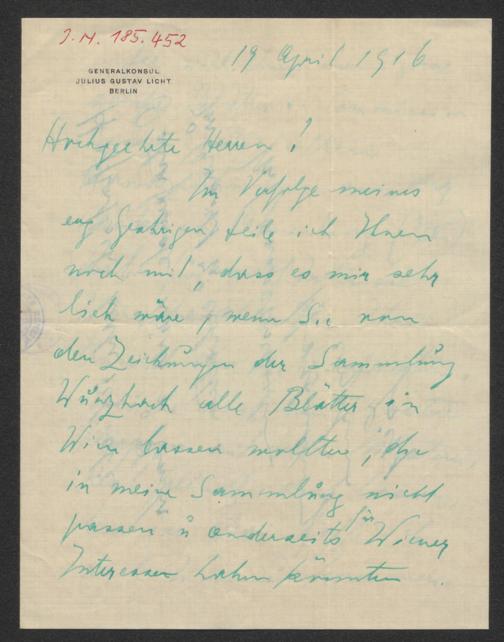 J.N. 185.452
19 April 1916
GENERALKONSUL
JULIUS GUSTAV LICHT
BERLIN
Hochgeehrte Herren!
Im Verfolge meines
gestrigen teile ich Ihnen
noch mit, dass es mir sehr
lieb wäre, wenn Sie von
den Zeichnungen der Sammlung
Wurzbach alle Blätter in
Wien lassen wollten, die
in meine Sammlung nicht
passen u anderseits für Wiener
Interesse haben könnten.